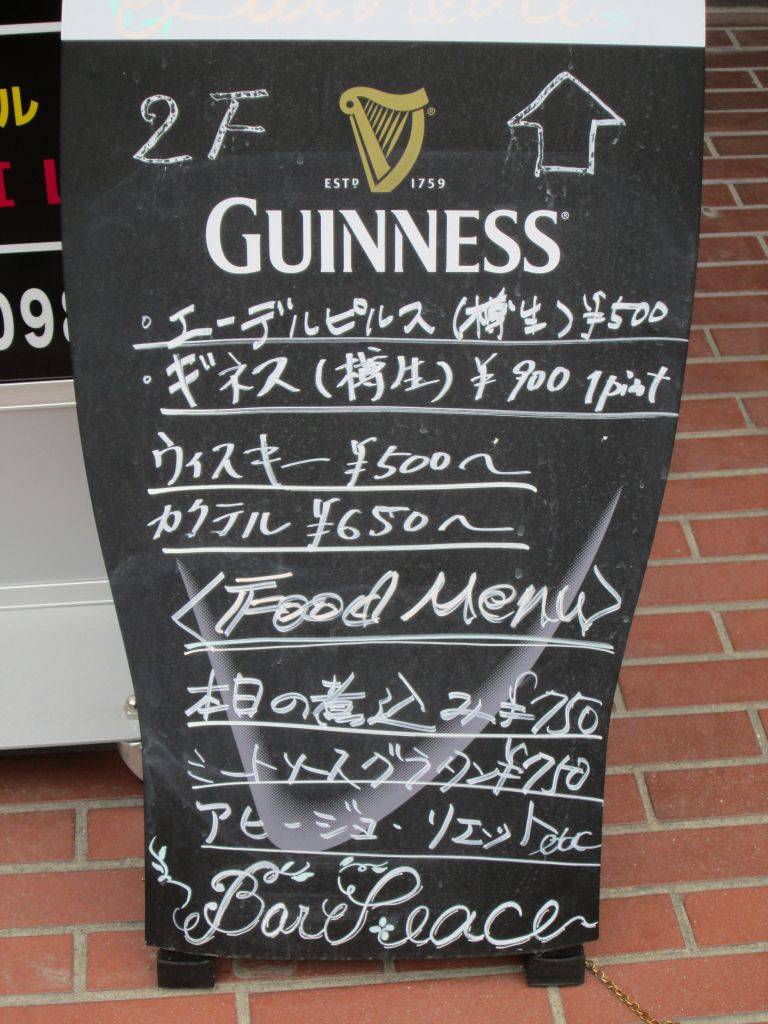 Bar Peace
ル
098
2F
ESTD 1759
GUINNESS
・エーデルピルス(樽生)¥500
・ギネス(樽生)¥900 1pint
ウィスキー ¥500〜
カクテル ¥650〜
<Food Menu>
本日の煮込み¥750
ミートソースグラタン¥750
アヒージョ・リエットetc
Bar Peace